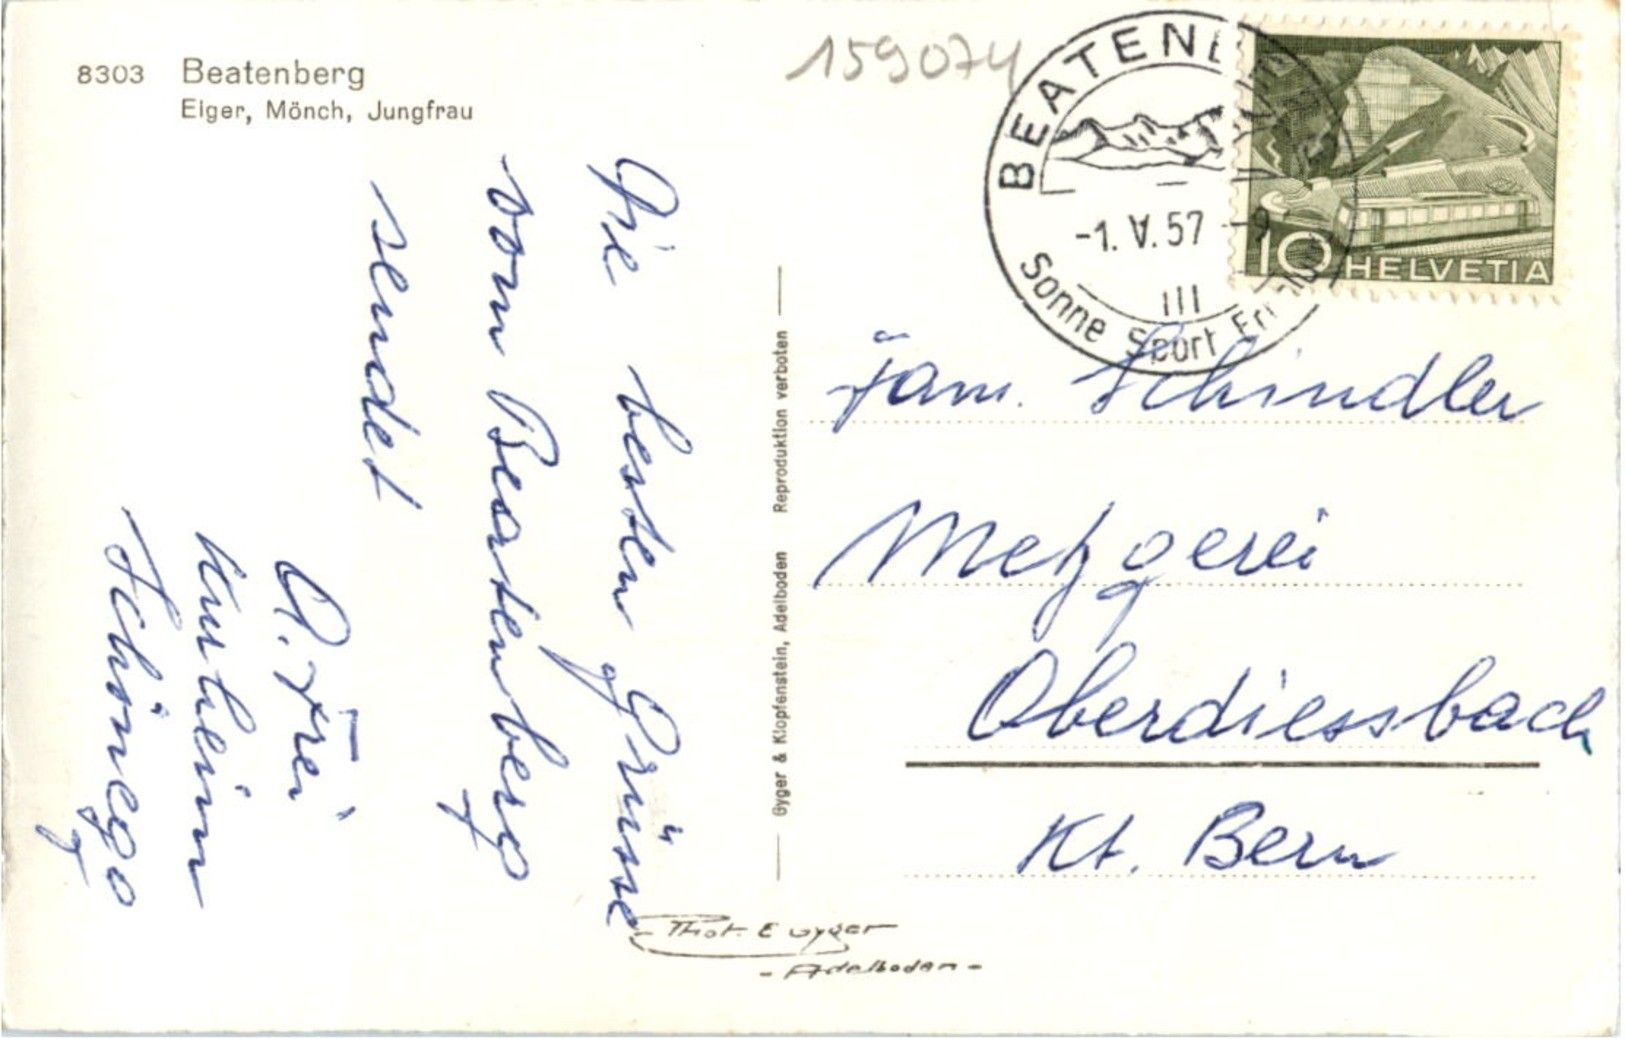 8303 Beatenberg
Eiger, Mönch, Jungfrau
159074
BEATENBERG
-1. V. 57 -9
III
Sonne Sport
10 HELVETIA
Die besten Grüsse
vom Beatenberg
sendet
A. Frei
Kurheim
Schönegg
Gyger & Klopfenstein, Adelboden Reproduktion verboten
Fam. Schindler
Metzgerei
Oberdiessbach
Kt. Bern
Phot. E Gyger
- Adelboden -